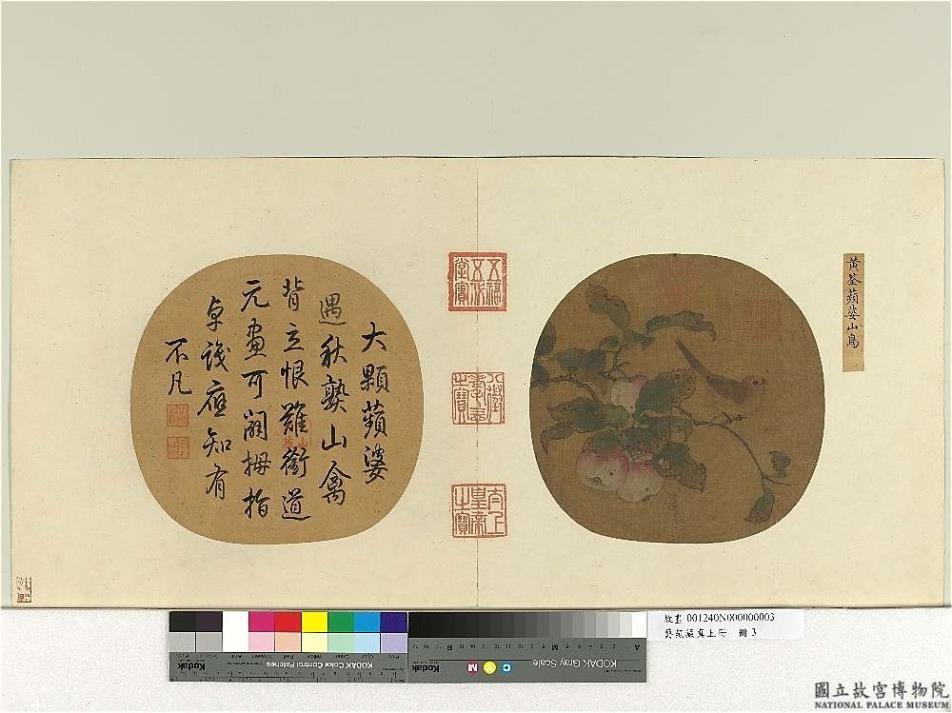 黃筌蘋婆山鳥
五福五代堂寶
八徵耄念之寶
太上皇帝之寶
大顆蘋婆
遇秋熟山禽
背立恨難銜道
元畫可拇指
卓識應知有
不凡
故畫 001240N000000003
藝苑藏真上冊 冊 3
KODAK Color Control Patches
Kodak
KODAK Gray Scale
C Y M
A
國立故宮博物院
NATIONAL PALACE MUSEUM